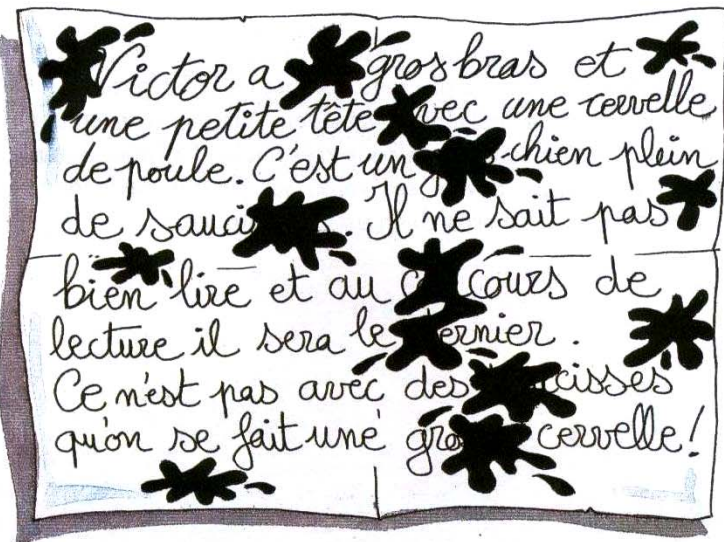 Victor a gros bras et
une petite tête avec une cervelle
de poule. C'est un chien plein
de . Il ne sait pas
bien lire et au de
lecture il sera le dernier.
Ce n'est pas avec des
qu'on se fait une cervelle!